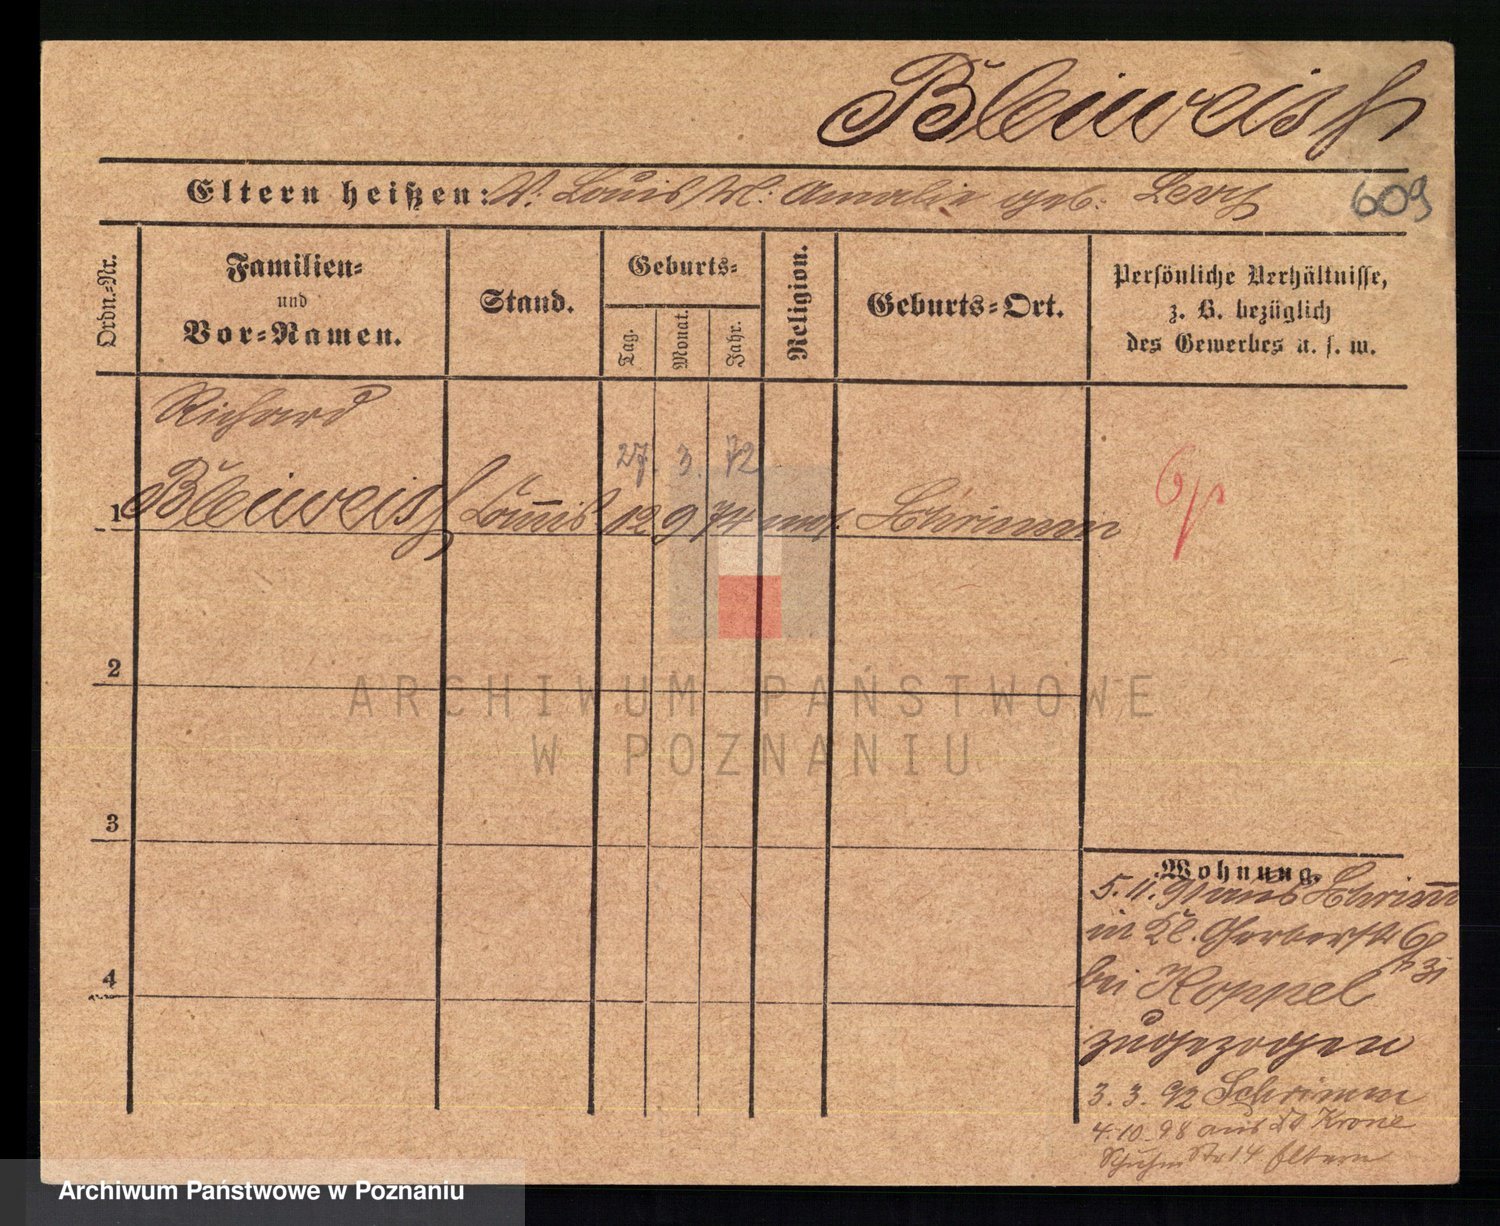 Bleiweiss
Eltern heißen: V. Louis M: Amalie geb. Levy
609
Ordn.-Nr.
Familien-
und
Vor-Namen.
Stand.
Geburts-
Tag.
Monat.
Jahr.
Religion.
Geburts-Ort.
Persönliche Verhältnisse,
z. B. bezüglich
des Gewerbes u. s. w.
Richard
27. 3. 72
1 Bleiweiss 12 9 74 mos. Schrimm
2
3
4
Wohnung.
5.11.91 aus Schrimm
in Kl. Gerberstr 6
bei Koppel
zugezogen
3. 3. 92 Schrimm
4.10.98 aus Dt Krone
Str 14 Eltern
ARCHIWUM PAŃSTWOWE
W POZNANIU
Archiwum Państwowe w Poznaniu